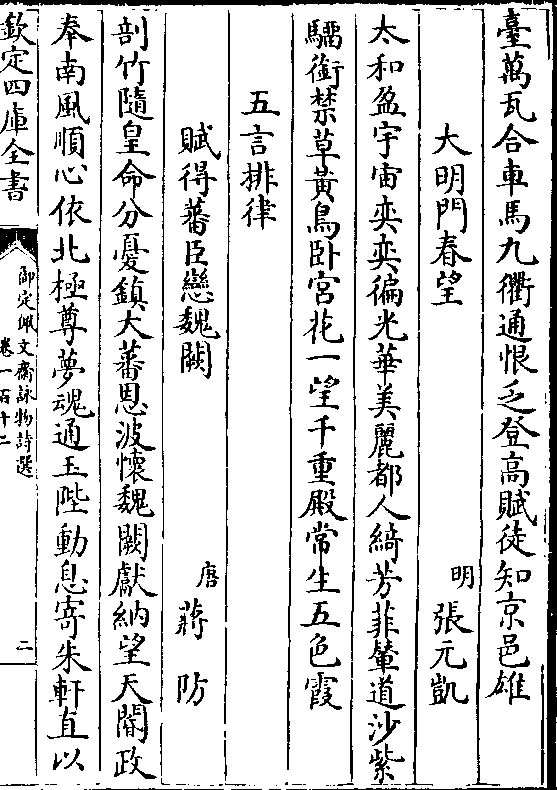 臺萬瓦合車馬九衢通恨乏登高賦徒知京邑雄
大明門春望
明 張元凱
太和盈宇宙奕奕徧光華美麗都人綺芳菲輦道沙紫
騮銜禁草黃鳥卧宮花一望千重殿常生五色霞
五言排律
賦得蕃臣戀魏闕
唐 蔣防
剖竹隨皇命分憂鎮大蕃恩波懷魏闕獻納望天閽政
奉南風順心依北極尊夢魂通玉陛動息寄朱軒直以
欽定四庫全書
御定佩文齋詠物詩選
卷一百十二
二